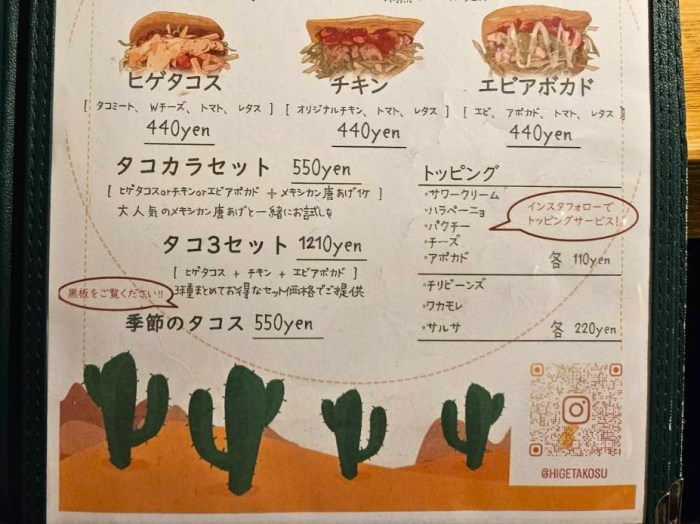 ヒゲタコス
チキン
エビアボカド
[ タコミート、Wチーズ、トマト、レタス ]
[ オリジナルチキン、トマト、レタス ]
[ エビ、アボカド、トマト、レタス ]
440yen
440yen
440yen
タコカラセット 550yen
[ ヒゲタコスorチキンorエビアボカド + メキシカン唐あげ1ケ ]
大人気のメキシカン唐あげと一緒にお試しを
タコ3セット 1210yen
[ ヒゲタコス + チキン + エビアボカド ]
黒板をご覧ください!!
3種まとめてお得なセット価格でご提供
季節のタコス 550yen
トッピング
・サワークリーム
・ハラペーニョ
・パクチー
・チーズ
・アボカド
インスタフォローで
トッピングサービス!
各 110yen
・チリビーンズ
・ワカモレ
・サルサ
各 220yen
@HIGETAKOSU